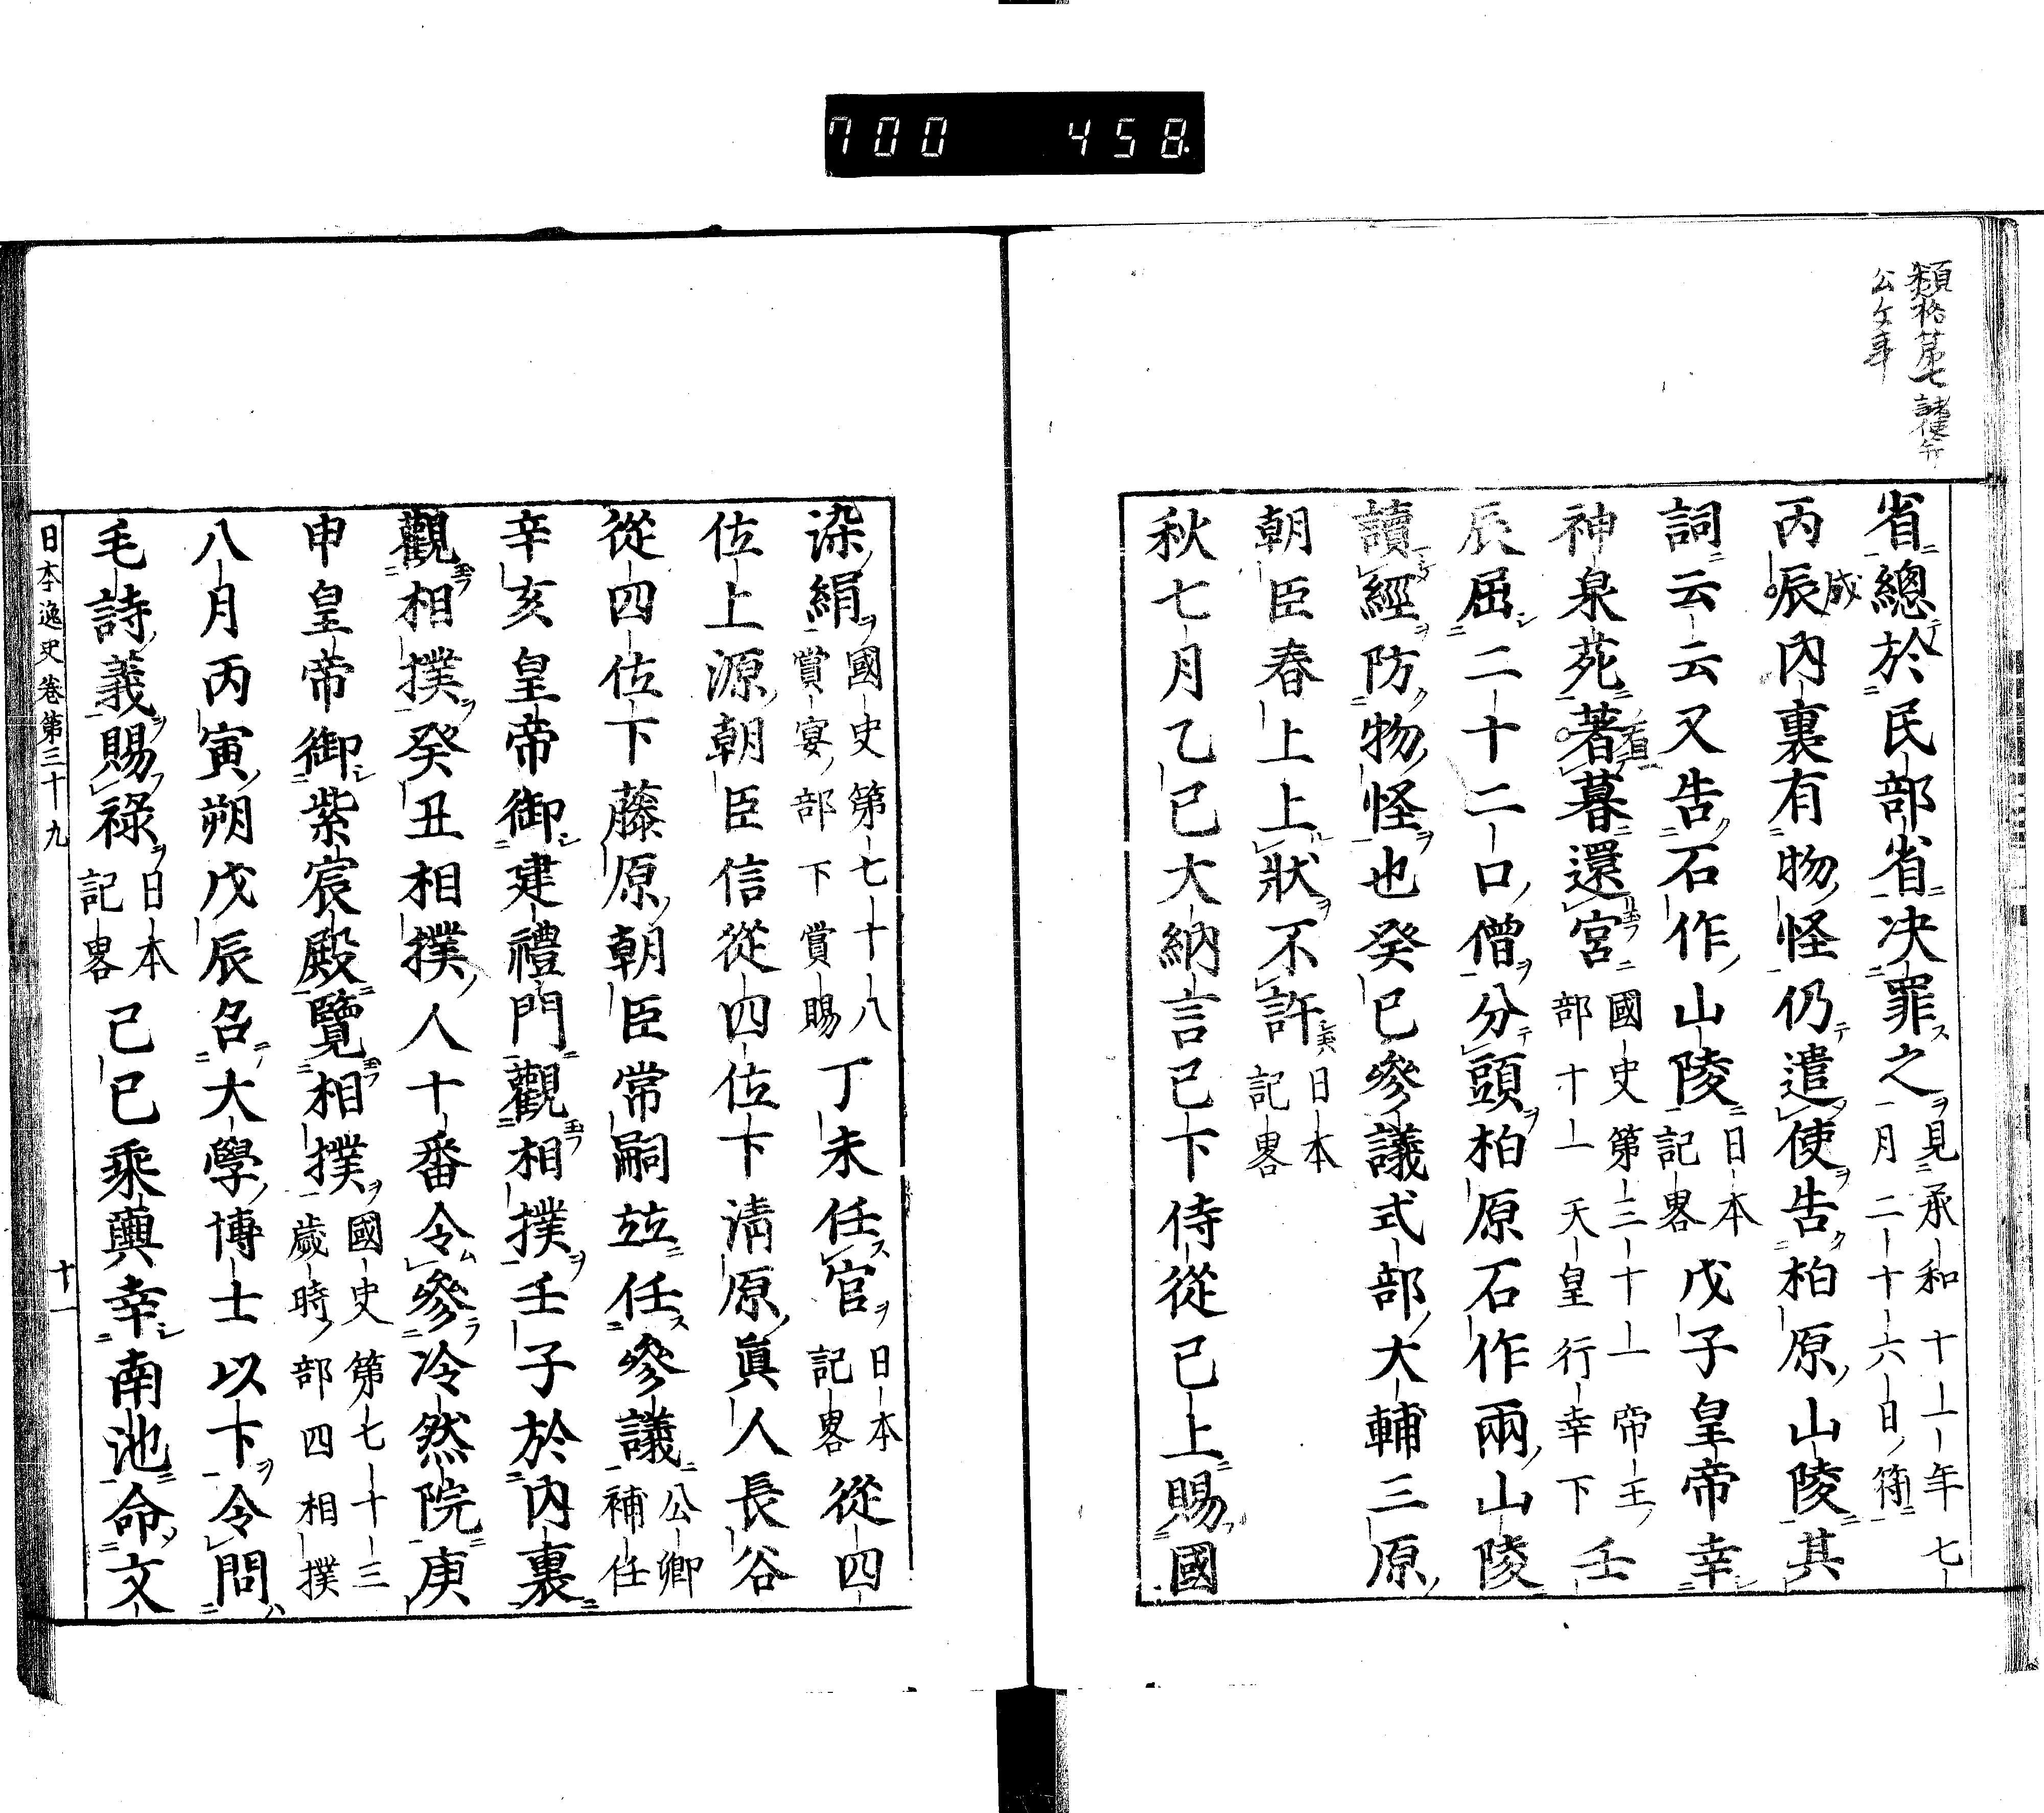 700 458
類格第七諸使并
公文事
省總於民部省决罪之見承和十一年七
月二十六日符
丙辰內裏有物怪仍遣使告柏原山陵其
戌
詞云云又告石作山陵日本
記畧戊子皇帝幸
神泉苑著暮還宮國史第三十一帝王
部十一天皇行幸下壬
辰屈二十二口僧分頭柏原石作兩山陵
讀經防物怪也癸巳參議式部大輔三原
朝臣春上上狀不許日本
記畧
秋七月乙巳大納言已下侍從已上賜國
染絹國史第七十八
賞宴部下賞賜丁未任官日本
記畧從四
位上源朝臣信從四位下淸原眞人長谷
從四位下藤原朝臣常嗣竝任參議公卿
補任
辛亥皇帝御建禮門觀相撲壬子於內裏
觀相撲癸丑相撲人十番令參冷然院庚
申皇帝御紫宸殿覽相撲國史第七十三
歲時部四相撲
八月丙寅朔戊辰召大學博士以下令問
毛詩義賜祿日本
記畧己巳乘輿幸南池命文
日本逸史卷第三十九 十一